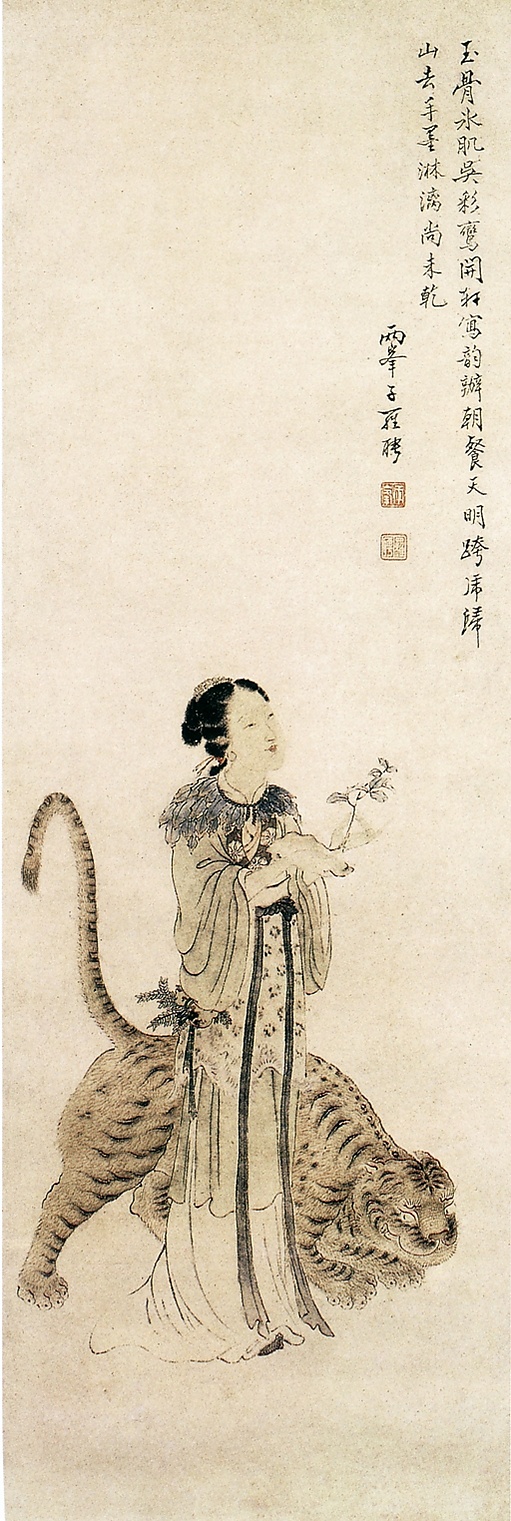 玉骨冰肌吳彩鸞開軒寫韵辦朝餐天明跨虎歸
山去手墨淋漓尚未乾
兩峯子羅聘